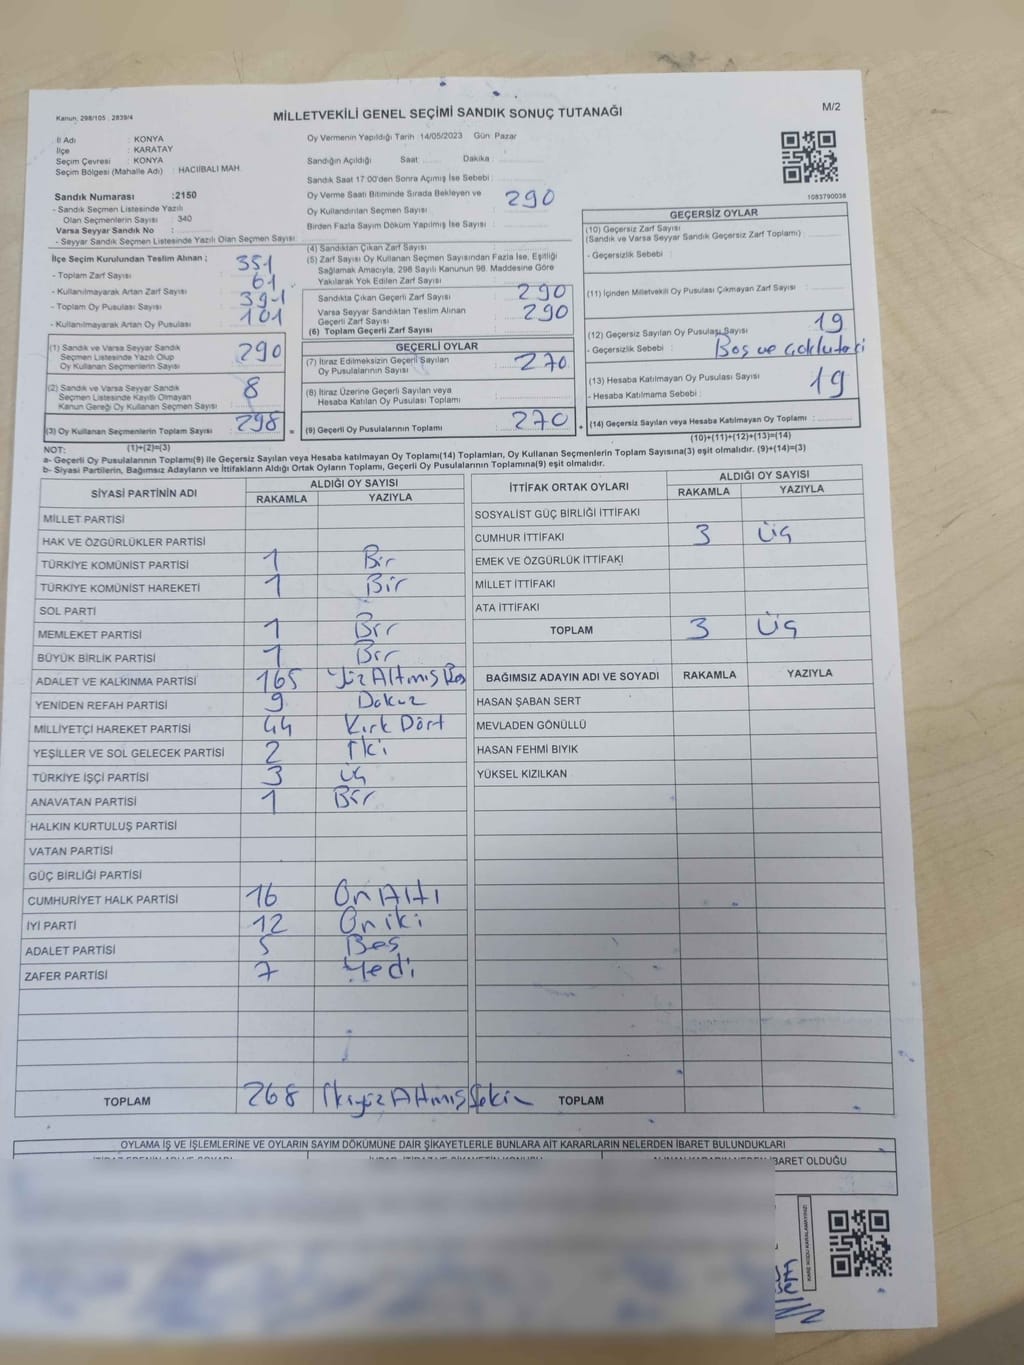 Kanun: 298/105 : 2839/4
MİLLETVEKİLİ GENEL SEÇİMİ SANDIK SONUÇ TUTANAĞI
M/2
İl Adı : KONYA
İlçe : KARATAY
Seçim Çevresi : KONYA
Seçim Bölgesi (Mahalle Adı) : HACIİBALI MAH.
Sandık Numarası : 2150
- Sandık Seçmen Listesinde Yazılı
Olan Seçmenlerin Sayısı : 340
Varsa Seyyar Sandık No :
- Seyyar Sandık Seçmen Listesinde Yazılı Olan Seçmen Sayısı:
Oy Vermenin Yapıldığı Tarih 14/05/2023 Gün Pazar
Sandığın Açıldığı Saat: Dakika :
Sandık Saat 17:00'den Sonra Açılmış İse Sebebi :
Oy Verme Saati Bitiminde Sırada Bekleyen ve
Oy Kullandırılan Seçmen Sayısı : 290
Birden Fazla Sayım Döküm Yapılmış İse Sayısı :
1083790038
İlçe Seçim Kurulundan Teslim Alınan ;
- Toplam Zarf Sayısı : 351
- Kullanılmayarak Artan Zarf Sayısı : 61
- Toplam Oy Pusulası Sayısı : 391
- Kullanılmayarak Artan Oy Pusulası : 101
(1) Sandık ve Varsa Seyyar Sandık
Seçmen Listesinde Yazılı Olup
Oy Kullanan Seçmenlerin Sayısı : 290
(2) Sandık ve Varsa Seyyar Sandık
Seçmen Listesinde Kayıtlı Olmayan
Kanun Gereği Oy Kullanan Seçmen Sayısı : 8
(3) Oy Kullanan Seçmenlerin Toplam Sayısı : 298
(1)+(2)=(3)
(4) Sandıktan Çıkan Zarf Sayısı :
(5) Zarf Sayısı Oy Kullanan Seçmen Sayısından Fazla İse, Eşitliği
Sağlamak Amacıyla, 298 Sayılı Kanunun 98. Maddesine Göre
Yakılarak Yok Edilen Zarf Sayısı :
Sandıkta Çıkan Geçerli Zarf Sayısı : 290
Varsa Seyyar Sandıktan Teslim Alınan
Geçerli Zarf Sayısı : 290
(6) Toplam Geçerli Zarf Sayısı :
GEÇERLİ OYLAR
(7) İtiraz Edilmeksizin Geçerli Sayılan
Oy Pusulalarının Sayısı : 270
(8) İtiraz Üzerine Geçerli Sayılan veya
Hesaba Katılan Oy Pusulası Toplamı :
= (9) Geçerli Oy Pusulalarının Toplamı : 270
GEÇERSİZ OYLAR
(10) Geçersiz Zarf Sayısı
(Sandık ve Varsa Seyyar Sandık Geçersiz Zarf Toplamı) :
- Geçersizlik Sebebi :
(11) İçinden Milletvekili Oy Pusulası Çıkmayan Zarf Sayısı :
(12) Geçersiz Sayılan Oy Pusulası Sayısı : 19
- Geçersizlik Sebebi : Boş ve
(13) Hesaba Katılmayan Oy Pusulası Sayısı : 19
- Hesaba Katılmama Sebebi :
+ (14) Geçersiz Sayılan veya Hesaba Katılmayan Oy Toplamı :
(10)+(11)+(12)+(13)=(14)
NOT:
a- Geçerli Oy Pusulalarının Toplamı(9) ile Geçersiz Sayılan veya Hesaba katılmayan Oy Toplamı(14) Toplamları, Oy Kullanan Seçmenlerin Toplam Sayısına(3) eşit olmalıdır. (9)+(14)=(3)
b- Siyasi Partilerin, Bağımsız Adayların ve İttifakların Aldığı Ortak Oyların Toplamı, Geçerli Oy Pusulalarının Toplamına(9) eşit olmalıdır.
SİYASİ PARTİNİN ADI ALDIĞI OY SAYISI
RAKAMLA YAZIYLA
MİLLET PARTİSİ
HAK VE ÖZGÜRLÜKLER PARTİSİ
TÜRKİYE KOMÜNİST PARTİSİ 1 Bir
TÜRKİYE KOMÜNİST HAREKETİ 1 Bir
SOL PARTİ
MEMLEKET PARTİSİ 1 Bir
BÜYÜK BİRLİK PARTİSİ 1 Bir
ADALET VE KALKINMA PARTİSİ 165 Yüz Altmış Beş
YENİDEN REFAH PARTİSİ 9 Dokuz
MİLLİYETÇİ HAREKET PARTİSİ 44 Kırk Dört
YEŞİLLER VE SOL GELECEK PARTİSİ 2 İki
TÜRKİYE İŞÇİ PARTİSİ 3 Üç
ANAVATAN PARTİSİ 1 Bir
HALKIN KURTULUŞ PARTİSİ
VATAN PARTİSİ
GÜÇ BİRLİĞİ PARTİSİ
CUMHURİYET HALK PARTİSİ 16 On Altı
İYİ PARTİ 12 On iki
ADALET PARTİSİ 5 Beş
ZAFER PARTİSİ 7 Yedi
TOPLAM 268 İkiyüz Altmış Sekiz
İTTİFAK ORTAK OYLARI ALDIĞI OY SAYISI
RAKAMLA YAZIYLA
SOSYALİST GÜÇ BİRLİĞİ İTTİFAKI
CUMHUR İTTİFAKI 3 Üç
EMEK VE ÖZGÜRLÜK İTTİFAKI
MİLLET İTTİFAKI
ATA İTTİFAKI
TOPLAM 3 Üç
BAĞIMSIZ ADAYIN ADI VE SOYADI RAKAMLA YAZIYLA
HASAN ŞABAN SERT
MEVLADEN GÖNÜLLÜ
HASAN FEHMİ BIYIK
YÜKSEL KIZILKAN
TOPLAM
OYLAMA İŞ VE İŞLEMLERİNE VE OYLARIN SAYIM DÖKÜMÜNE DAİR ŞİKAYETLERLE BUNLARA AİT KARARLARIN NELERDEN İBARET BULUNDUKLARI
BARET OLDUĞU
KARE KODU KARALAMAYINIZ!